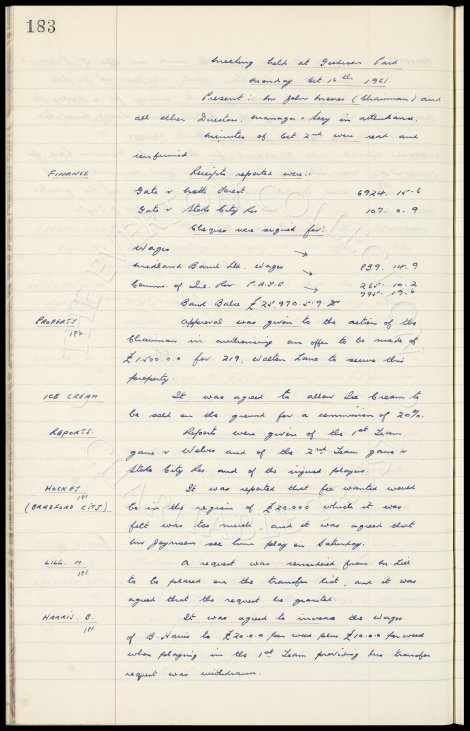 183
Meeting held at Goodison Park
Monday Oct 16th 1961
Present :- Mr John Moores (Chairman) and
all other Directors, Manager & Secy in attendance.
Minutes of Oct 2nd were read and
confirmed.
FINANCE Receipts reported were:-
Gate v Notts Forest 6924. 15. 6
Gate v Stoke City Res 107. 0. 9
Cheques were signed for:
Wages →
Midland Bank Ltd. Wages → 839. 14. 9
Comms of Inl. Rev. P.A.Y.E → 265. 10. 2
795. 19. 6
Bank Balce £25,970.5.9
PROPERTY Approval was given to the action of the
182 Chairman in authorising an offer to be made of
£1,500.0.0 for 219, Walton Lane to secure this
property.
ICE CREAM It was agreed to allow Ice Cream to
be sold on the ground for a commission of 20%.
REPORTS. Reports were given of the 1st Team
game v Wolves and of the 2nd Team game v
Stoke City Res. and of the injured players.
HOCKEY It was reported that fee wanted would
181
(BRADFORD CITY) be in the region of £20,000 which it was
felt was too much, and it was agreed that
Mr see him play on Saturday.
LILL. M. A request was considered from Mr Lill
181 to be placed on the transfer list, and it was
agreed that the request be granted.
HARRIS. B. It was agreed to increase the wages
181 of B. Harris to £20.0.0 per week plus £10.0.0 per week
when playing in the 1st Team providing his transfer
request was withdrawn.
THE EVERTON COLLECTION